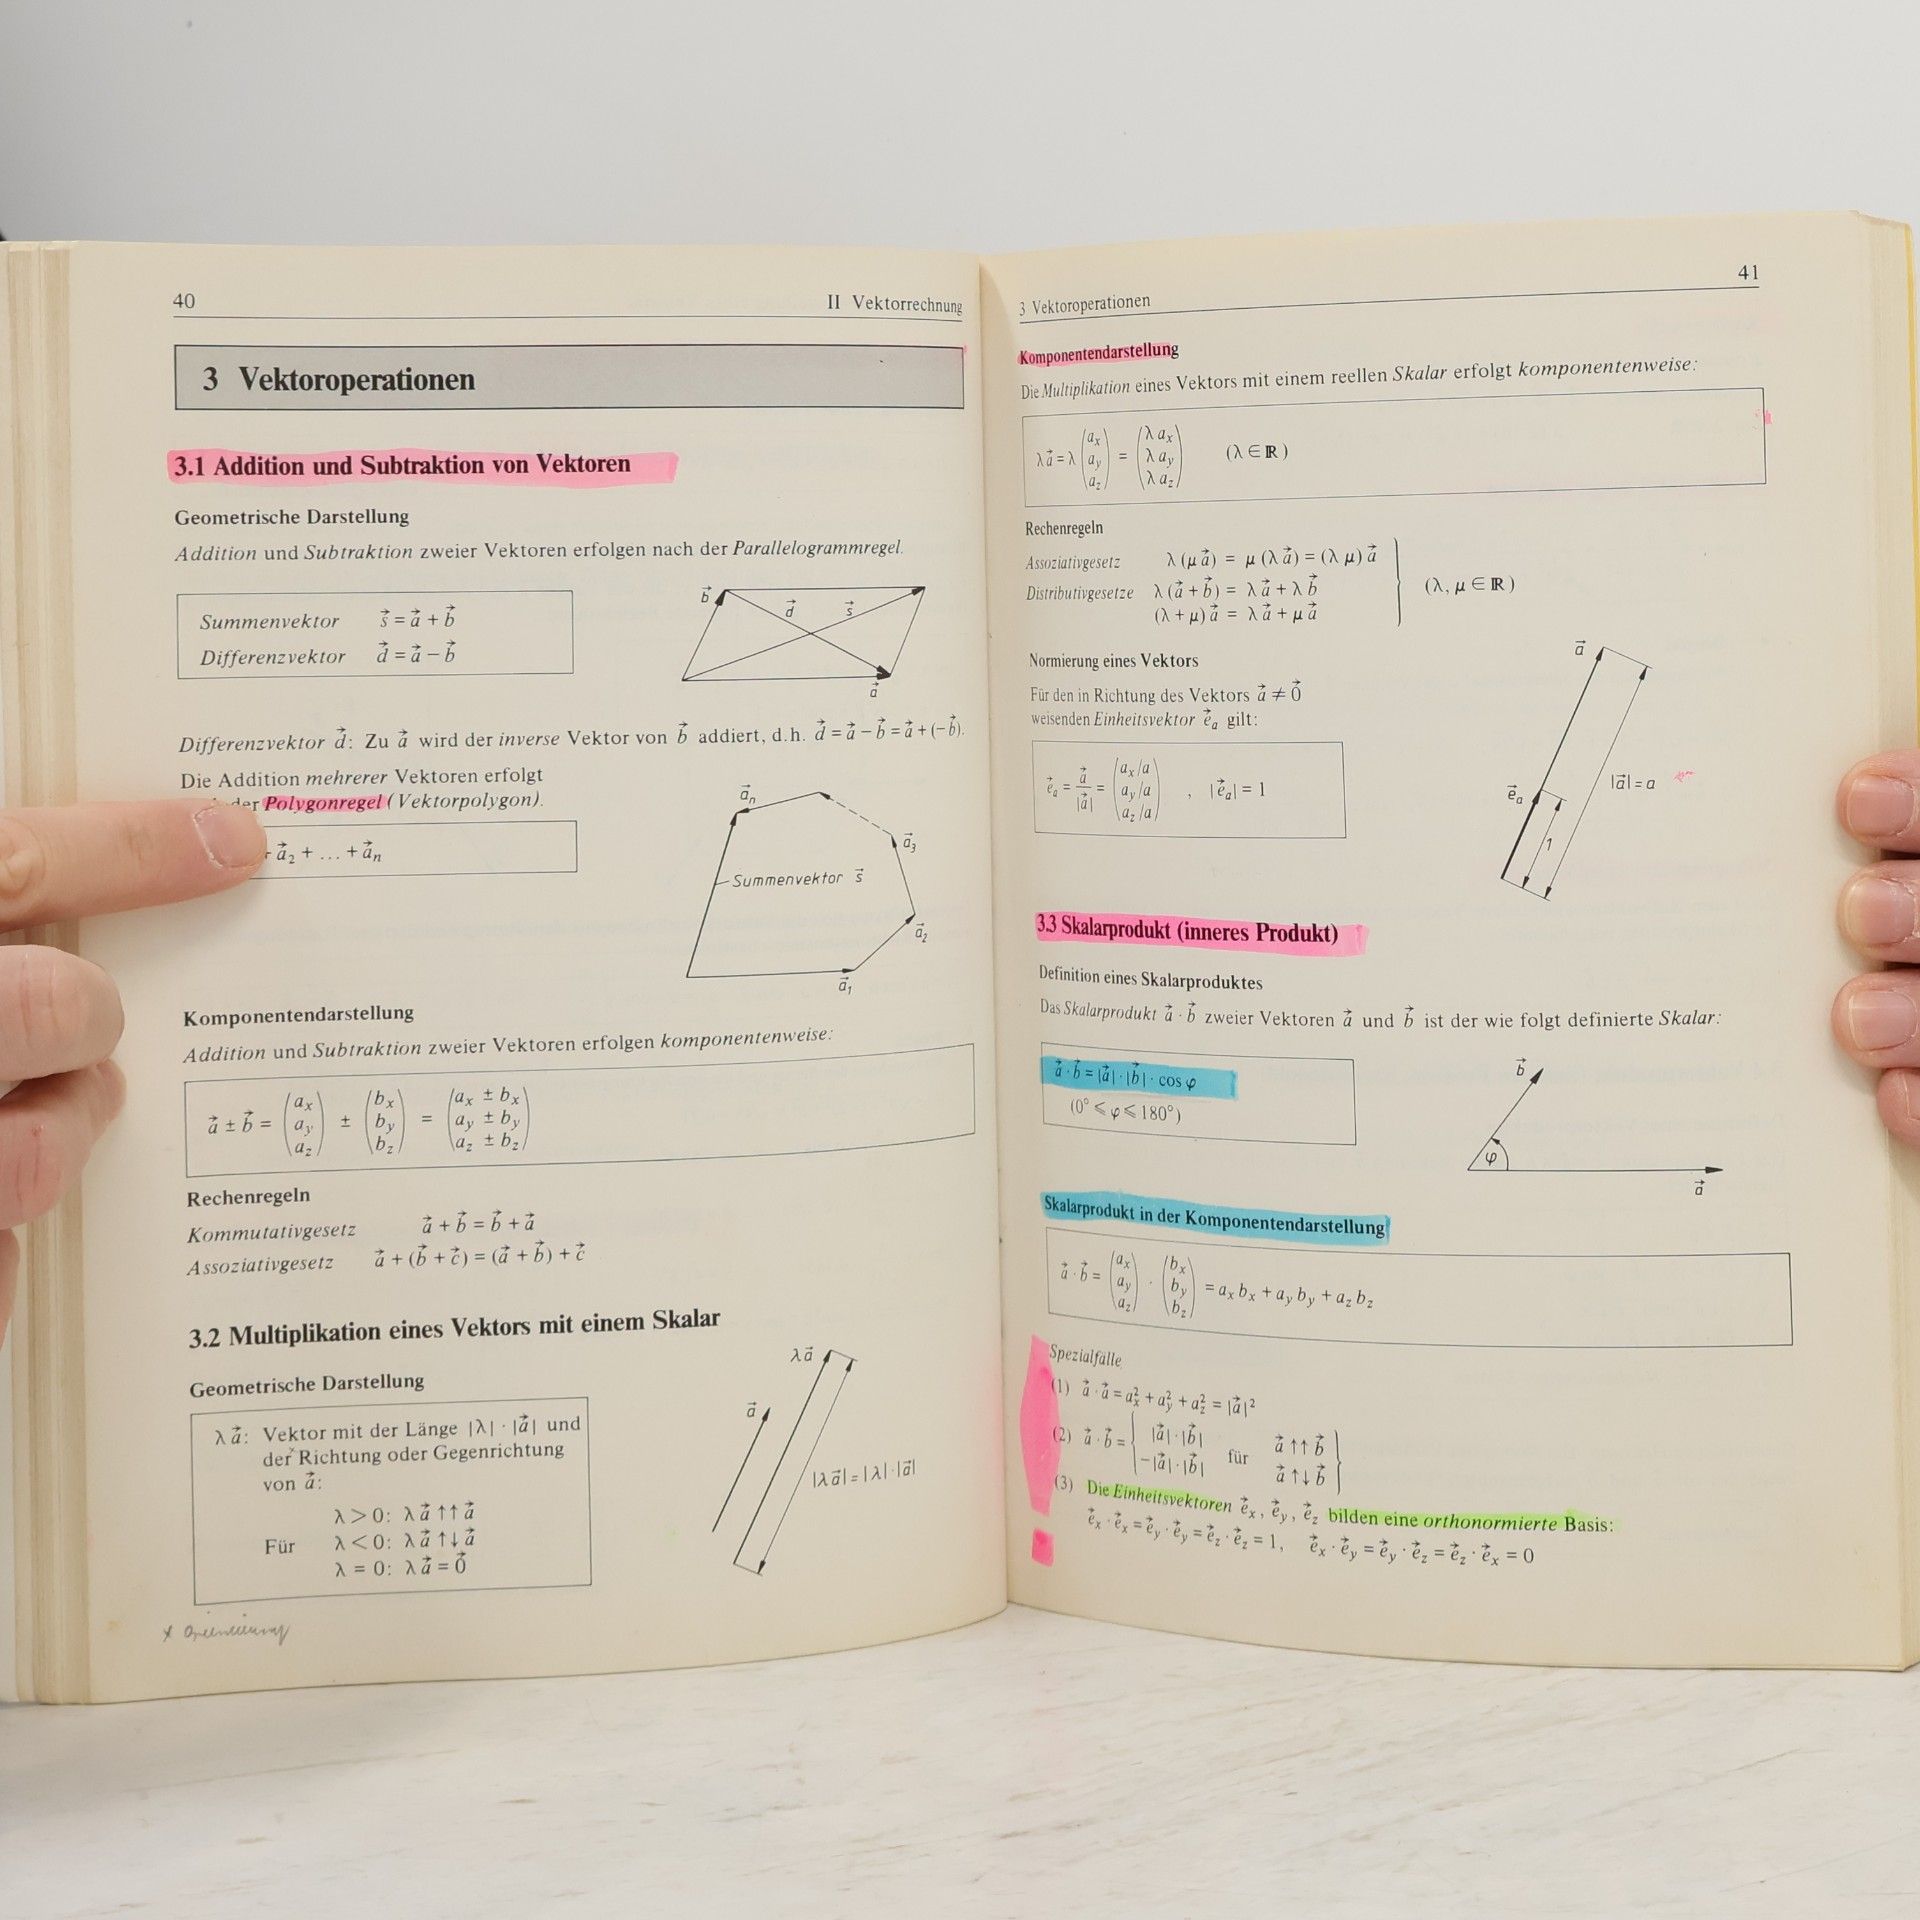 40 II Vektorrechnung
3 Vektoroperationen
3.1 Addition und Subtraktion von Vektoren
Geometrische Darstellung
Addition und Subtraktion zweier Vektoren erfolgen nach der Parallelogrammregel.
Summenvektor s⃗ = a⃗ + b⃗
Differenzvektor d⃗ = a⃗ − b⃗
b⃗ d⃗ s⃗
a⃗
Differenzvektor d⃗: Zu a⃗ wird der inverse Vektor von b⃗ addiert, d.h. d⃗ = a⃗ − b⃗ = a⃗ + (−b⃗).
Die Addition mehrerer Vektoren erfolgt
der Polygonregel (Vektorpolygon).
a⃗₂ + ... + a⃗ₙ
a⃗ₙ
a⃗₃
Summenvektor s⃗
a⃗₂
a⃗₁
Komponentendarstellung
Addition und Subtraktion zweier Vektoren erfolgen komponentenweise:
a⃗ ± b⃗ = (aₓ a_y a_z) ± (bₓ b_y b_z) = (aₓ ± bₓ a_y ± b_y a_z ± b_z)
Rechenregeln
Kommutativgesetz a⃗ + b⃗ = b⃗ + a⃗
Assoziativgesetz a⃗ + (b⃗ + c⃗) = (a⃗ + b⃗) + c⃗
3.2 Multiplikation eines Vektors mit einem Skalar
Geometrische Darstellung
λa⃗: Vektor mit der Länge |λ| · |a⃗| und
der Richtung oder Gegenrichtung
von a⃗:
λ > 0: λa⃗ ↑↑ a⃗
Für λ < 0: λa⃗ ↑↓ a⃗
λ = 0: λa⃗ = 0⃗
λa⃗
a⃗
|λa⃗| = |λ|·|a⃗|
41
3 Vektoroperationen
Komponentendarstellung
Die Multiplikation eines Vektors mit einem reellen Skalar erfolgt komponentenweise:
λa⃗ = λ (aₓ a_y a_z) = (λaₓ λa_y λa_z) (λ ∈ ℝ)
Rechenregeln
Assoziativgesetz λ(μa⃗) = μ(λa⃗) = (λμ)a⃗
Distributivgesetze λ(a⃗ + b⃗) = λa⃗ + λb⃗ (λ, μ ∈ ℝ)
(λ + μ)a⃗ = λa⃗ + μa⃗
Normierung eines Vektors
Für den in Richtung des Vektors a⃗ ≠ 0⃗
weisenden Einheitsvektor e⃗ₐ gilt:
e⃗ₐ = a⃗/|a⃗| = (aₓ/a a_y/a a_z/a), |e⃗ₐ| = 1
a⃗
|a⃗| = a
e⃗ₐ
1
3.3 Skalarprodukt (inneres Produkt)
Definition eines Skalarproduktes
Das Skalarprodukt a⃗ · b⃗ zweier Vektoren a⃗ und b⃗ ist der wie folgt definierte Skalar:
a⃗ · b⃗ = |a⃗| · |b⃗| · cos φ
(0° ≤ φ ≤ 180°)
b⃗
φ
a⃗
Skalarprodukt in der Komponentendarstellung
a⃗ · b⃗ = (aₓ a_y a_z) · (bₓ b_y b_z) = aₓbₓ + a_yb_y + a_zb_z
Spezialfälle
(1) a⃗ · a⃗ = aₓ² + a_y² + a_z² = |a⃗|²
(2) a⃗ · b⃗ = { |a⃗|·|b⃗| −|a⃗|·|b⃗| für a⃗ ↑↑ b⃗ a⃗ ↑↓ b⃗ }
(3) Die Einheitsvektoren e⃗ₓ, e⃗_y, e⃗_z bilden eine orthonormierte Basis:
e⃗ₓ · e⃗ₓ = e⃗_y · e⃗_y = e⃗_z · e⃗_z = 1, e⃗ₓ · e⃗_y = e⃗_y · e⃗_z = e⃗_z · e⃗ₓ = 0